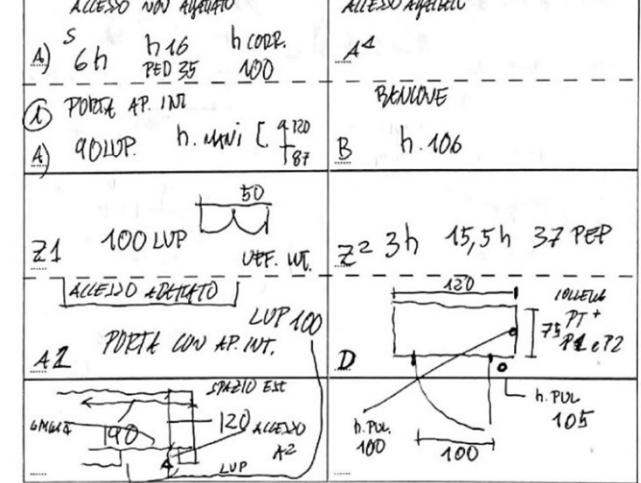 ACCESSO NON ADATTATO
A) S 6h h 16 h CORR.
PED 35 100
1 PORTA AP. INT
A) 90 LUP. h. MANI [ 120
87
Z1 100 LUP 50
UFF. INT.
ACCESSO ADATTATO
A2 PORTA CON AP. INT. LUP 100
SPAZIO EST
190 120 ACCESSO
A2
LUP
ACCESSO ADATTATO
A1
BANCONE
B h. 106
Z2 3h 15,5h 37 PED
120
75 PT +
P1 e P2
D
h. PUL
105
h. PUL.
100
100